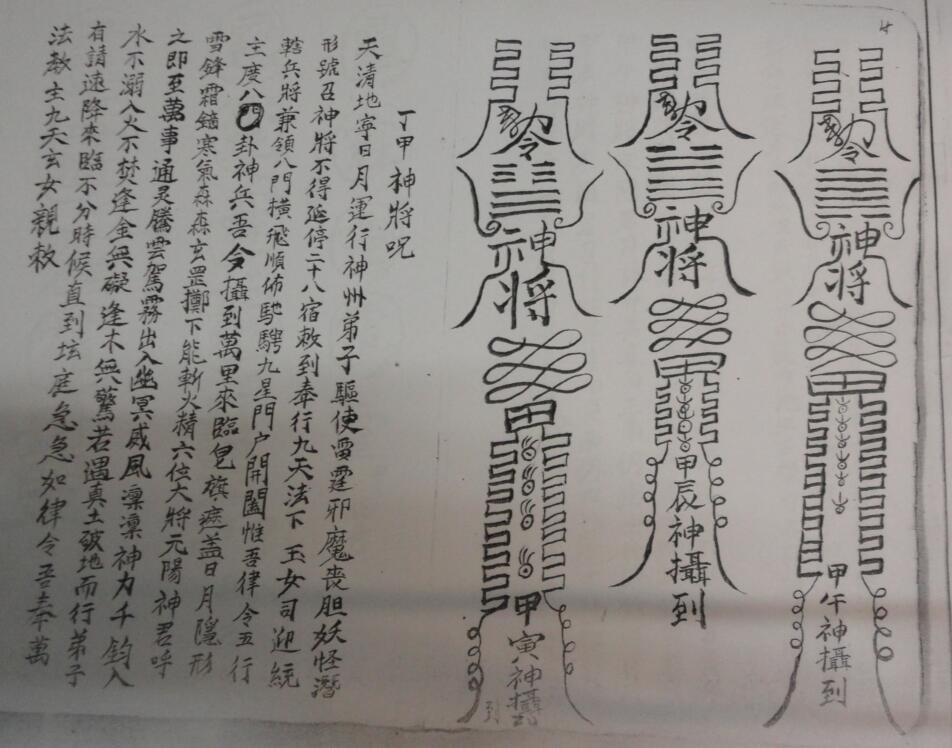 令
神将
甲
甲午神攝到
令
神将
甲
甲辰神攝到
令
神将
甲
甲寅神攝到
丁甲神將呪
天清地寧日月運行神州弟子驅使雷霆邪魔喪胆妖怪潛
形號召神將不得延停二十八宿敕到奉行九天法下玉女司迎統
轄兵將兼領八門橫飛順佈馳騁九星門户開闔惟吾律令五行
主度八卦神兵吾今攝到萬里來臨皂旗遮盖日月隱形
雪鋒霜鏑寒氣森森玄罡擲下能斬火精六位大將元陽神君呼
之即至萬事通灵騰雲駕霧出入幽冥威風凜凜神力千鈞入
水不溺入火不焚逢金無礙逢木無驚若遇真土破地而行弟子
有請速降來臨不分時候直到坛庭急急如律令吾奉萬
法教主九天玄女親敕